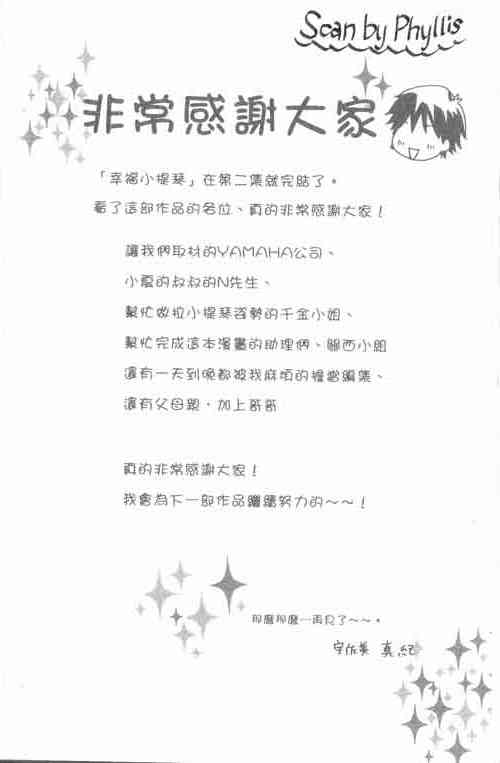 Scan by Phyllis
非常感謝大家
「幸福小提琴」在第二集就完結了。
看了這部作品的各位、真的非常感謝大家！
讓我們取材的YAMAHA公司、
小夏的叔叔的N先生、
幫忙做拉小提琴姿勢的千金小姐、
幫忙完成這本漫畫的助理們、關西小組
還有一天到晚都被我麻煩的擔當編集、
還有父母親．加上哥哥
真的非常感謝大家！
我會為下一部作品繼續努力的～～！
那麼那麼—再見了～～。
宇佐美 真紀